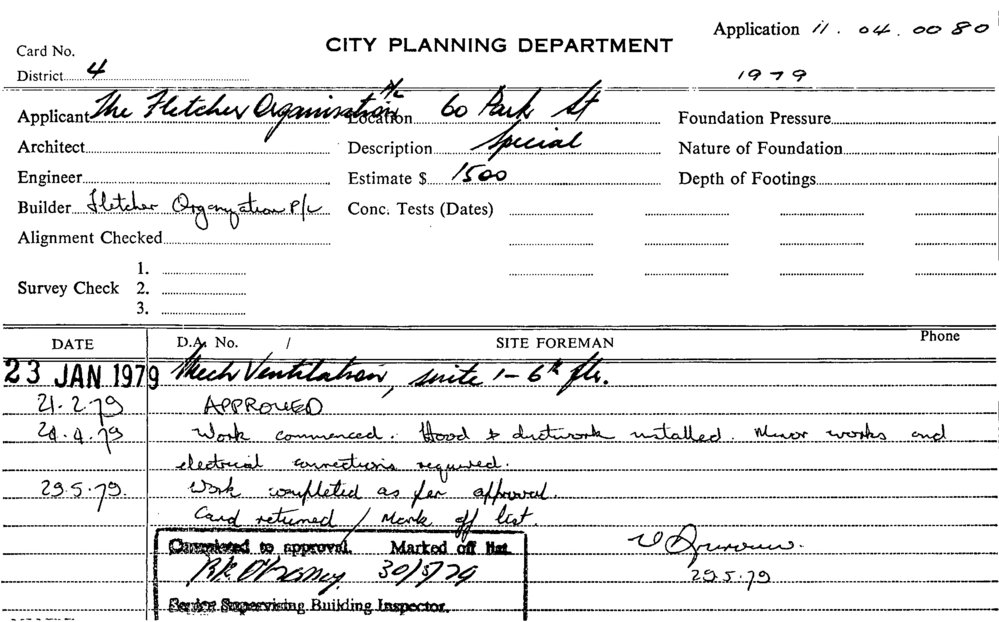 Application 11. 04. 0080
Card No.
CITY PLANNING DEPARTMENT
District 4
1979
Applicant The Fletcher Organisation P/L Location 60 Park St Foundation Pressure
Architect Description Special Nature of Foundation
Engineer Estimate $ 1500 Depth of Footings
Builder Fletcher Organyzation P/L Conc. Tests (Dates)
Alignment Checked
1.
Survey Check 2.
3.
DATE D.A. No. / SITE FOREMAN Phone
23 JAN 1979 Mech Ventilation, suite 1-6th flr.
21.2.79 APPROVED
24.4.79 Work commenced. Hood & ductwork installed. Minor works and
electrical connections required.
29.5.79. Work completed as per approval.
Card returned / Mark off list.
Completed to approval. Marked off list.
30/5/79
29.5.79
Senior Supervising Building Inspector.